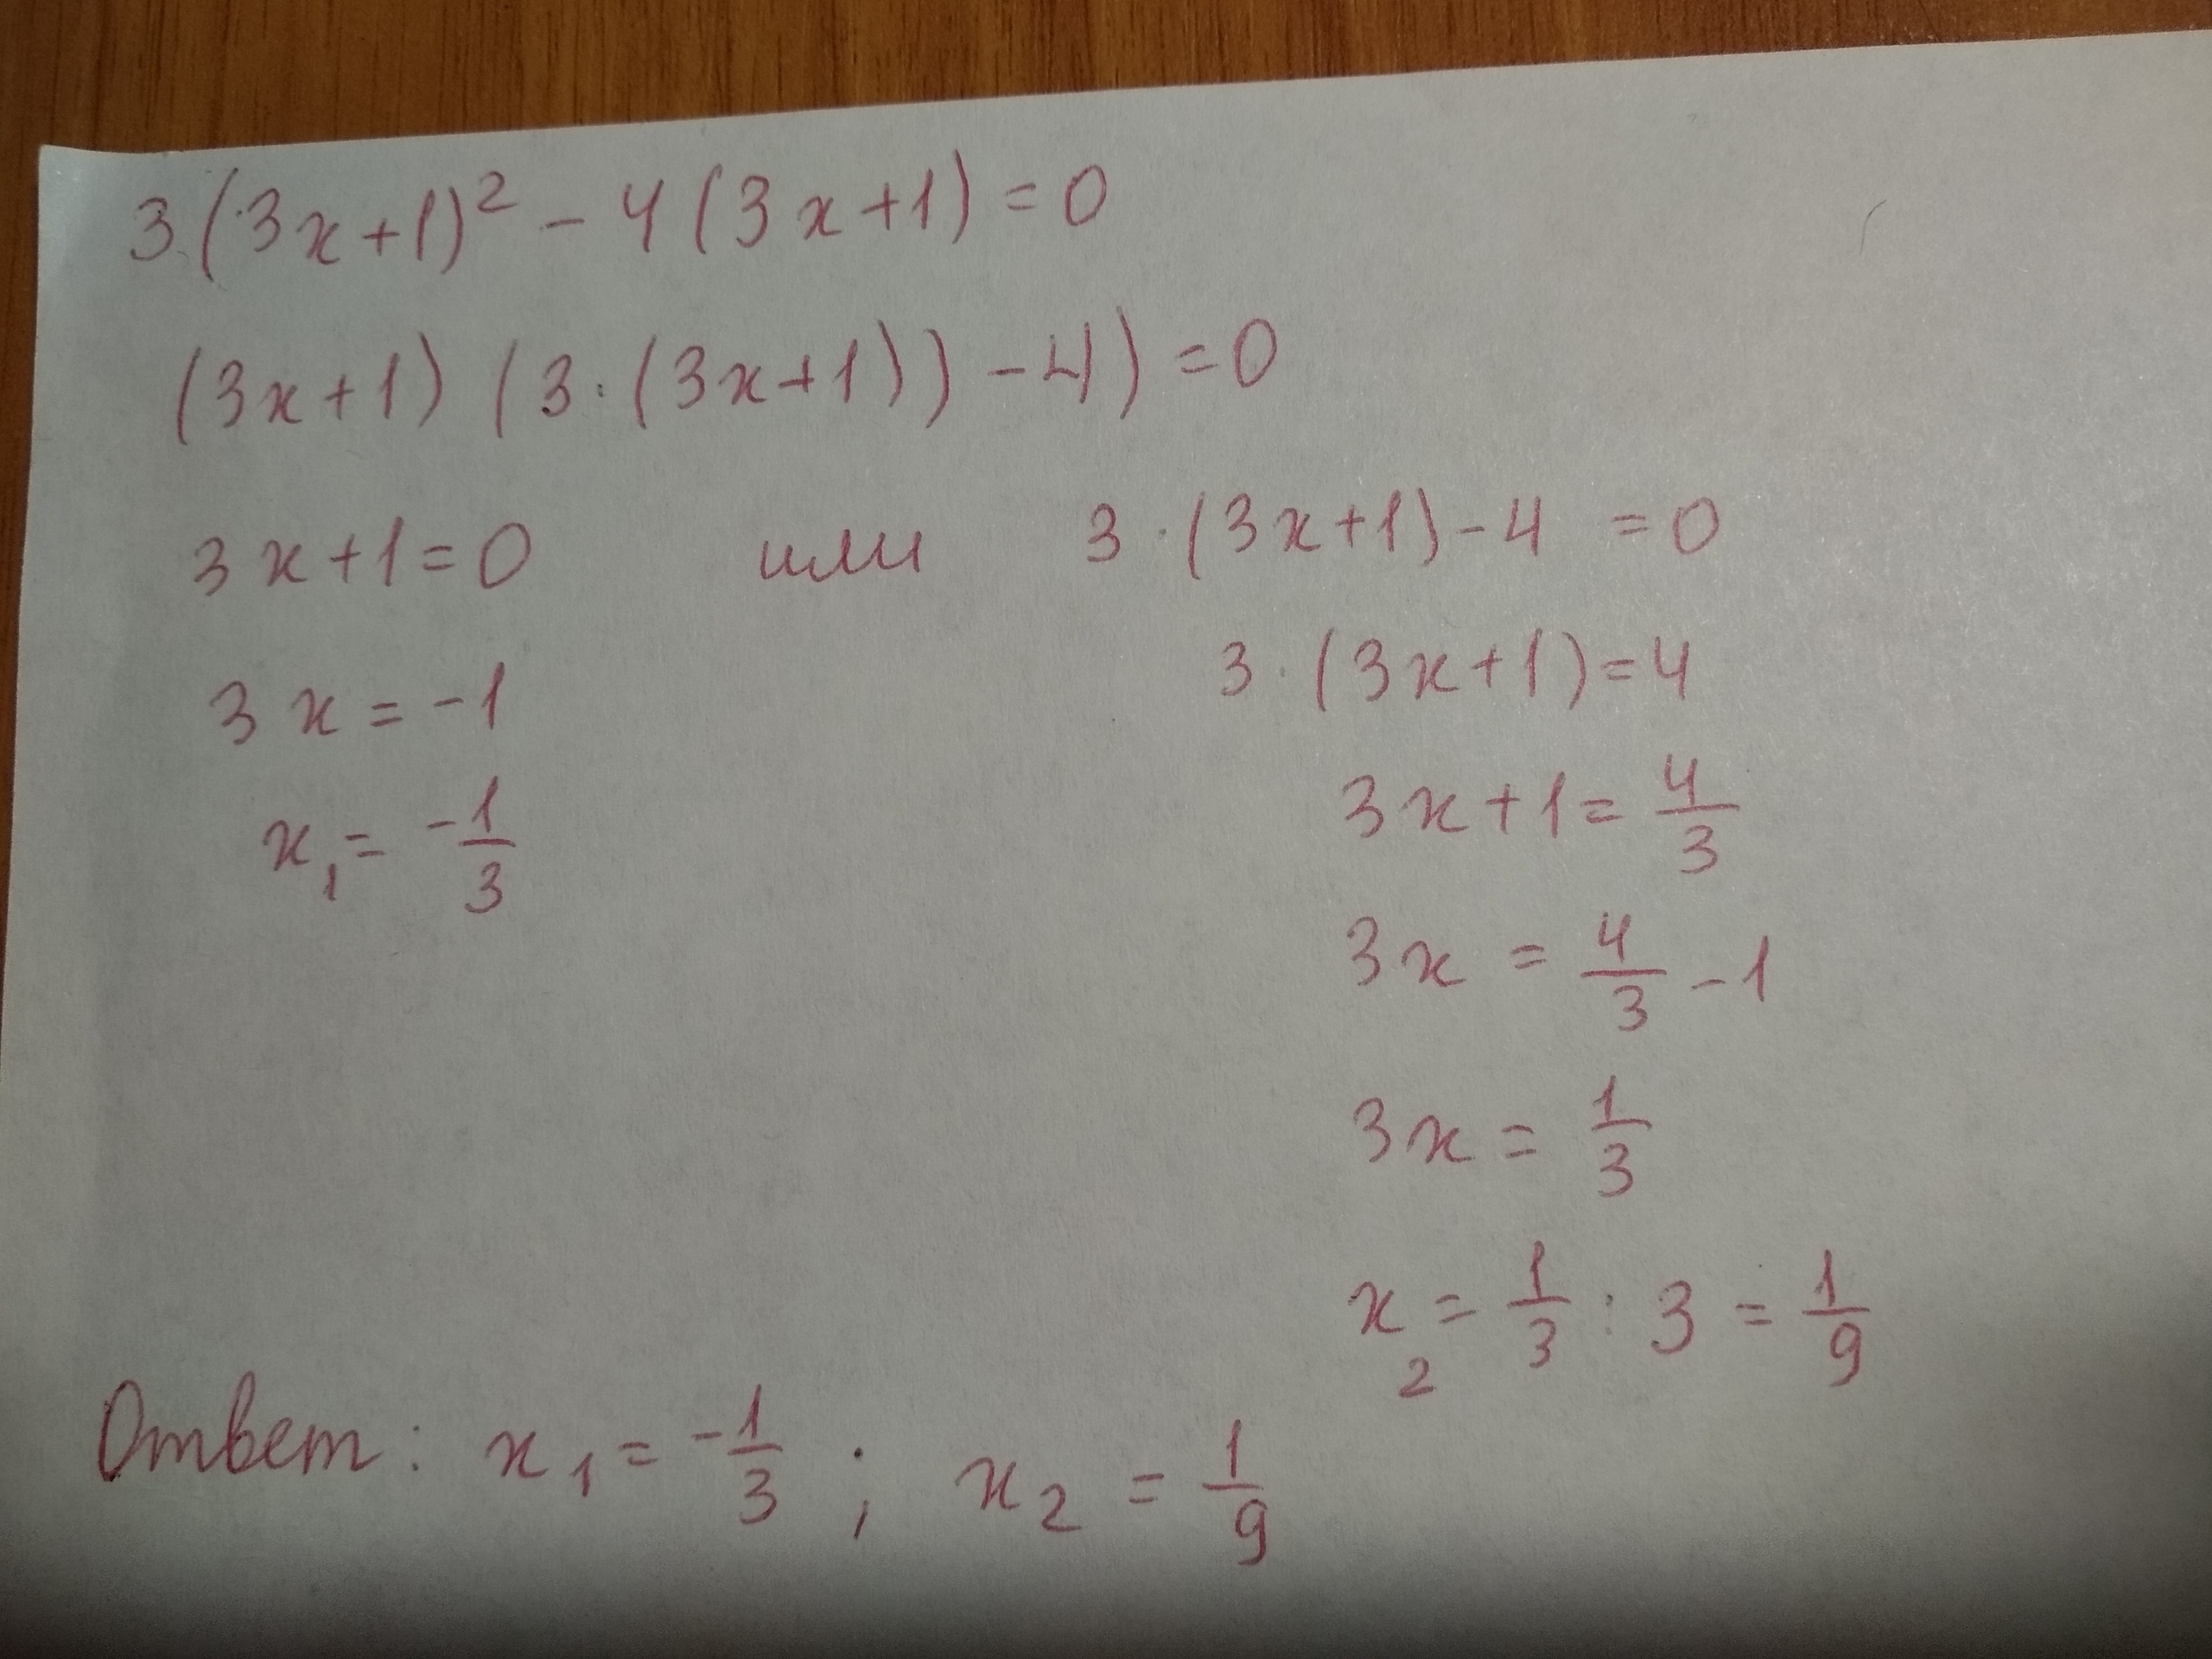 3·(3x+1)² - 4(3x+1) = 0
(3x+1) (3·(3x+1)) - 4) = 0
3x+1=0 или 3·(3x+1)-4 = 0
3x = -1 3·(3x+1)=4
x₁ = -1/3 3x+1 = 4/3
3x = 4/3 - 1
3x = 1/3
x₂ = 1/3 : 3 = 1/9
Ответ: x₁ = -1/3 ; x₂ = 1/9